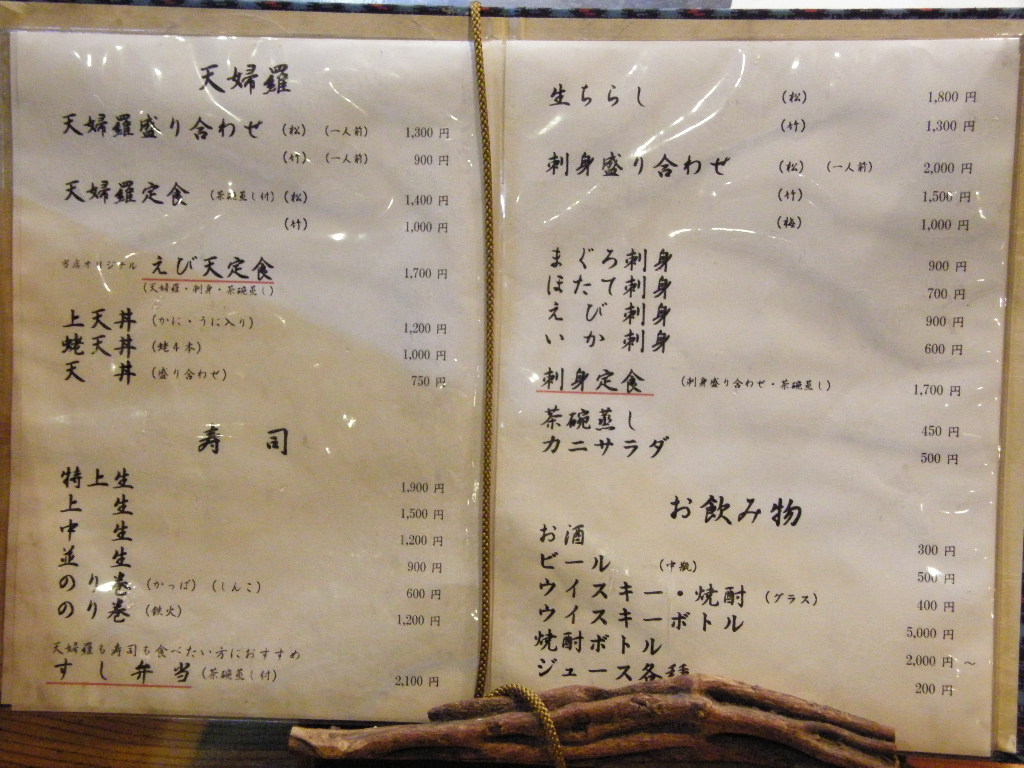 天婦羅
天婦羅盛り合わせ (松) (一人前) 1,300 円
(竹) (一人前) 900 円
天婦羅定食 (茶碗蒸し付) (松) 1,400 円
(竹) 1,000 円
当店オリジナル えび天定食 1,700 円
(天婦羅・刺身・茶碗蒸し)
上天丼 (かに・うに入り) 1,200 円
蛯天丼 (蛯4本) 1,000 円
天丼 (盛り合わせ) 750 円
寿司
特上生 1,900 円
上生 1,500 円
中生 1,200 円
並生 900 円
のり巻 (かっぱ) (しんこ) 600 円
のり巻 (鉄火) 1,200 円
天婦羅も寿司も食べたい方におすすめ
すし弁当 (茶碗蒸し付) 2,100 円
生ちらし (松) 1,800 円
(竹) 1,300 円
刺身盛り合わせ (松) (一人前) 2,000 円
(竹) 1,500 円
(梅) 1,000 円
まぐろ刺身 900 円
ほたて刺身 700 円
えび刺身 900 円
いか刺身 600 円
刺身定食 (刺身盛り合わせ・茶碗蒸し) 1,700 円
茶碗蒸し 450 円
カニサラダ 500 円
お飲み物
お酒 300 円
ビール (中瓶) 500 円
ウイスキー・焼酎 (グラス) 400 円
ウイスキーボトル 5,000 円
焼酎ボトル 2,000 円 ～
ジュース各種 200 円